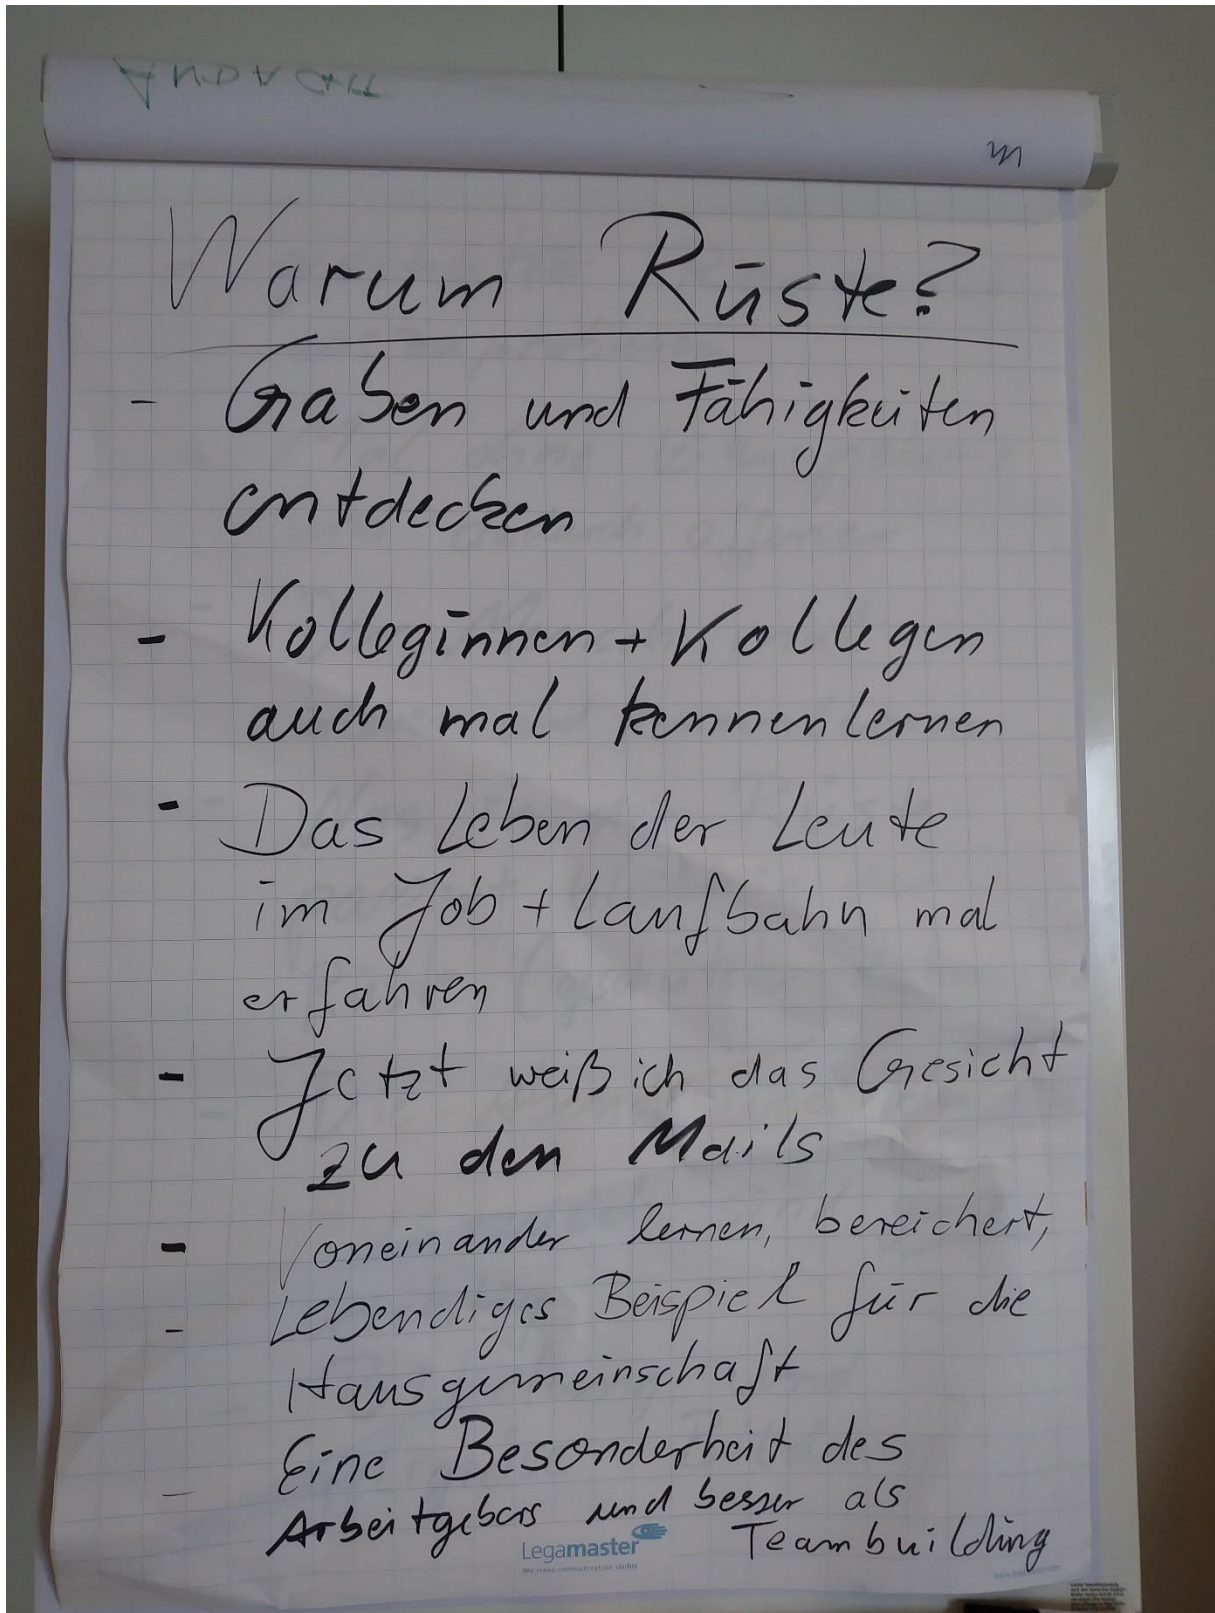 ANDACHT
m
Warum Rüste?
- Gaben und Fähigkeiten
entdecken
- Kolleginnen + Kollegen
auch mal kennenlernen
- Das Leben der Leute
im Job + Laufbahn mal
erfahren
- Jetzt weiß ich das Gesicht
zu den Mails
- Voneinander lernen, bereichert,
- Lebendiges Beispiel für die
Hausgemeinschaft
- Eine Besonderheit des
Arbeitgebers und besser als
Teambuilding
Legamaster